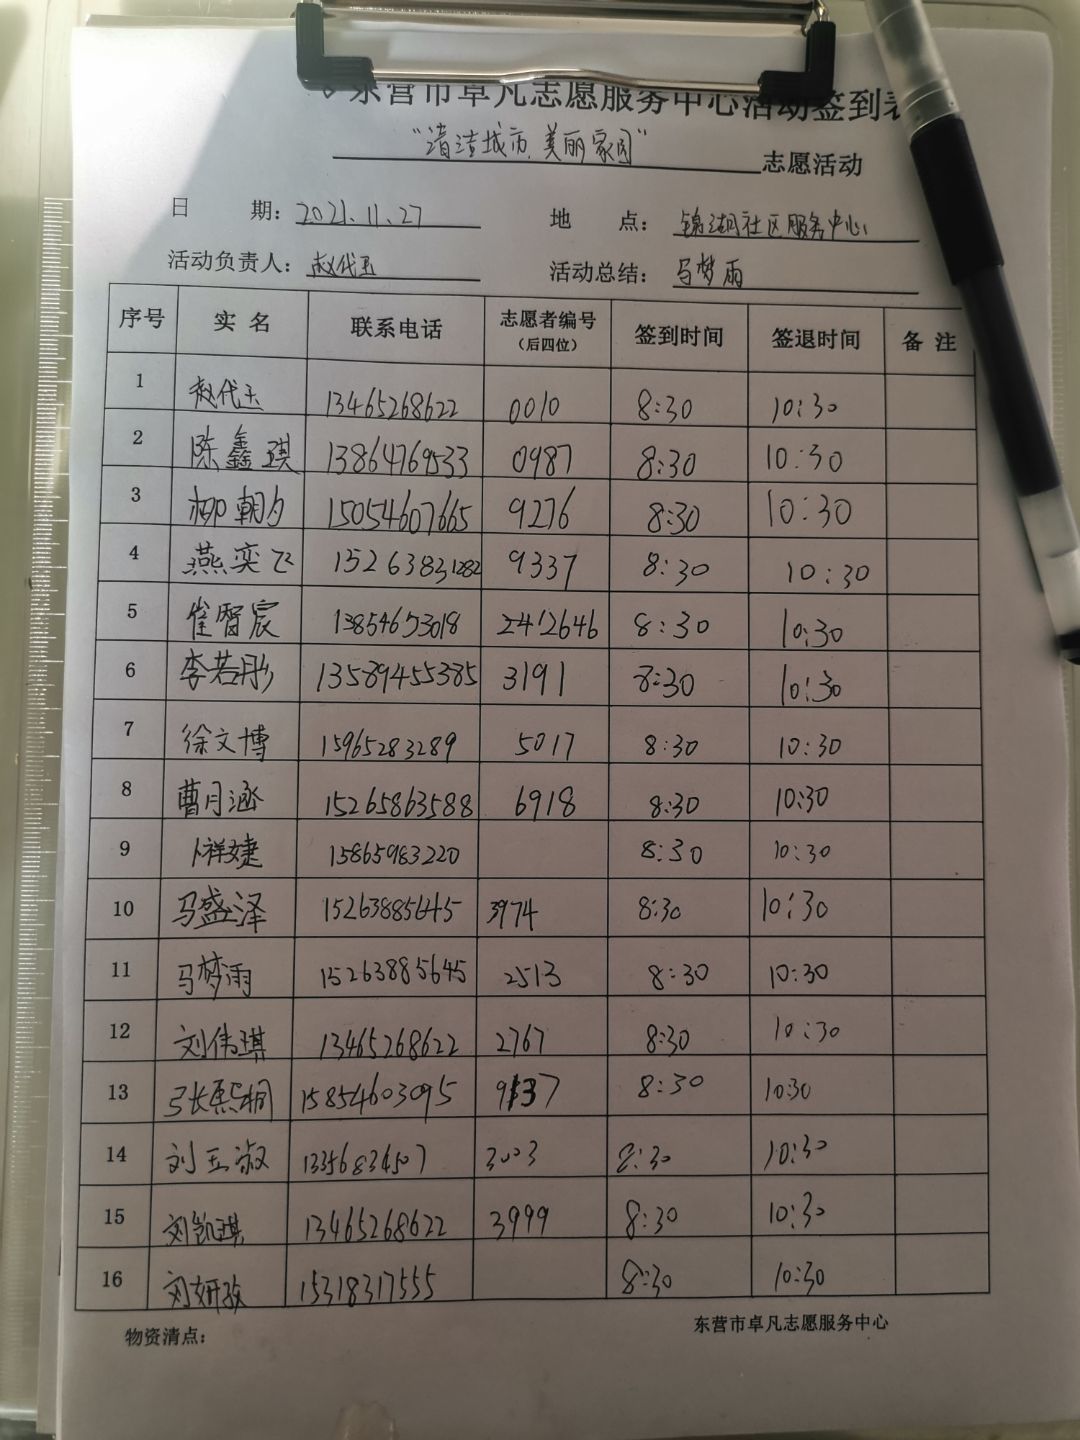 东营市卓凡志愿服务中心活动签到表
“清洁城市、美丽家园” 志愿活动
日 期: 2021.11.27 地 点: 锦湖社区服务中心
活动负责人: 赵代玉 活动总结: 马梦雨
序号 实 名 联系电话 志愿者编号 (后四位) 签到时间 签退时间 备 注
1 赵代玉 13465268622 0010 8:30 10:30
2 陈鑫琪 13864769533 0987 8:30 10:30
3 柳朝夕 15054607665 9276 8:30 10:30
4 燕奕飞 15263831282 9337 8:30 10:30
5 崔智宸 13854653018 2412646 8:30 10:30
6 李若彤 13589455385 3191 8:30 10:30
7 徐文博 15965283289 5017 8:30 10:30
8 曹月涵 15265863588 6918 8:30 10:30
9 卜祥婕 15865983220 8:30 10:30
10 马盛泽 15263885645 3974 8:30 10:30
11 马梦雨 15263885645 2513 8:30 10:30
12 刘伟琪 13465268622 2767 8:30 10:30
13 张熙桐 15854603095 9137 8:30 10:30
14 刘玉淑 13356834507 3003 8:30 10:30
15 刘凯琪 13465268622 3999 8:30 10:30
16 刘妍孜 15318317555 8:30 10:30
物资清点: 东营市卓凡志愿服务中心